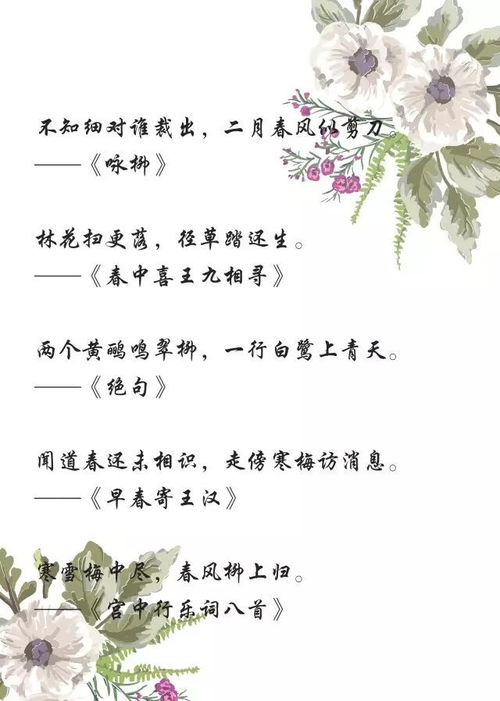 不知细对谁裁出，二月春风似剪刀。
——《咏柳》
林花扫更落，径草踏还生。
——《春中喜王九相寻》
两个黄鹂鸣翠柳，一行白鹭上青天。
——《绝句》
闻道春还未相识，走傍寒梅访消息。
——《早春寄王汉》
寒雪梅中尽，春风柳上归。
——《宫中行乐词八首》